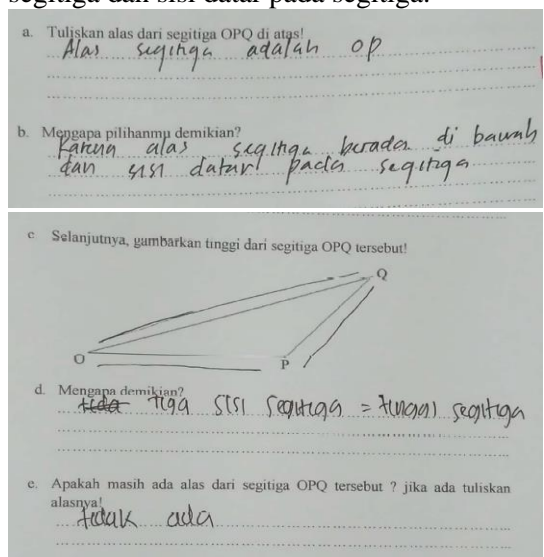 a. Tuliskan alas dari segitiga OPQ di atas!
Alas segitiga adalah OP
b. Mengapa pilihanmu demikian?
Karena alas segitiga berada di bawah
dan sisi datar pada segitiga
c Selanjutnya, gambarkan tinggi dari segitiga OPQ tersebut!
Q
O
P
d. Mengapa demikian?
tida tiga sisi segitiga = tinggi segitiga
e. Apakah masih ada alas dari segitiga OPQ tersebut ? jika ada tuliskan
alasnya!
tidak ada